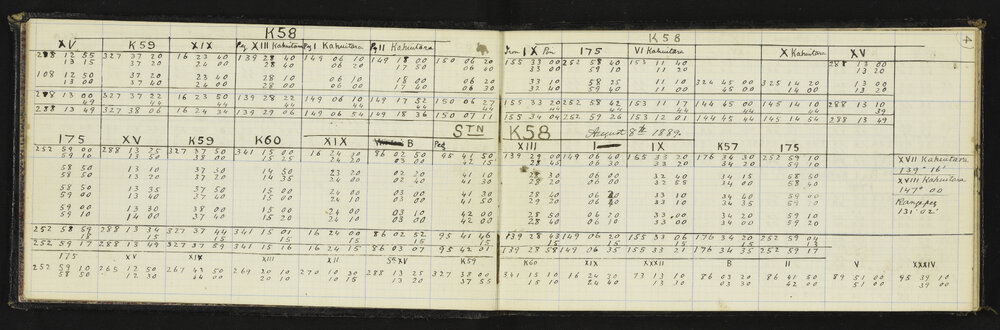 K58
K58
4
XV K59 XIX Peg XIII Kahuitara Peg I Kahuitara Peg II Kahuitara
288 12 55 327 37 20 16 23 40 139 28 40 149 06 10 149 18 00 150 06 20
13 15 37 20 24 00 28 40 06 20 17 50 06 40
108 12 50 37 20 23 40 28 10 06 10 18 00 06 20
13 00 37 40 24 00 28 00 06 00 17 40 06 30
288 13 00 327 37 22 16 23 50 139 28 22 149 06 10 149 17 52 150 06 27
49 44 44 44 44 44 44
288 13 49 327 38 06 16 24 34 139 29 06 149 06 54 149 18 36 150 07 11
Iron IX Pin 175 VI Kahuitara X Kahuitara XV
155 33 00 252 58 40 153 11 40 288 13 00
33 00 59 10 11 20 13 20
33 10 58 35 11 10 324 45 00 325 14 20 13 00
32 40 59 10 11 00 45 00 14 00 13 20
155 33 20 252 58 42 153 11 17 144 45 00 145 14 10 288 13 10
44 44 44 44 44 39
155 34 04 252 59 26 153 12 01 144 45 44 145 14 54 288 13 49
STN K58 August 8th 1889.
175 XV K59 K60 XIX B Peg
252 59 00 288 13 25 327 37 50 341 15 00 16 24 30 86 02 50 95 41 50
59 10 13 50 38 00 15 25 24 20 03 00 42 15
58 50 13 10 37 30 14 50 23 20 02 20 41 10
59 00 13 20 37 20 14 35 24 00 02 40 41 30
58 50 13 35 37 50 15 00 24 00 03 00 41 30
59 00 13 40 37 40 15 10 24 00 03 00 41 50
59 00 13 30 38 00 15 00 24 00 03 10 42 00
59 10 14 00 37 40 15 20 24 10 03 00 42 00
252 58 59 288 13 34 327 37 44 341 15 01 16 24 00 86 02 52 95 41 46
15 15 15 15 15 15
252 59 17 288 13 49 327 37 59 341 15 16 16 24 15 86 03 07 95 42 01
XIII I IX K57 175
139 29 00 149 06 40 155 33 20 176 34 30 252 59 10
28 45 06 30 33 20 34 30 59 10
28 30 06 00 32 40 34 15 58 50
28 20 06 00 32 55 34 00 58 40
28 40 06 20 33 10 34 40 59 00
29 20 06 33 10 34 35 59 10
28 50 06 20 33 00 34 40 59 00
28 40 06 10 33 00 34 20 59 10
139 28 43 149 06 20 155 33 06 176 34 20 252 59 01
15 15 15 15
139 28 58 149 06 35 155 33 21 176 34 35 252 59 17
XVII Kahuitara
139° 16'
XVIII Kahuitara
147° 00
Rangepeg
131° 02'
175 XV XIX XIII XII XV K59
252 59 10 265 12 50 267 269 20 10 270 10 30 288 13 25 327 38 00
58 50 12 30 10 20 13 20 37 55
K60 XIX XXXII B II V XXXIV
341 15 10 16 24 30 73 13 10 86 03 20 86 41 50 89 51 00 95 39 10
15 10 24 40 13 10 03 30 42 00 51 00 39 00